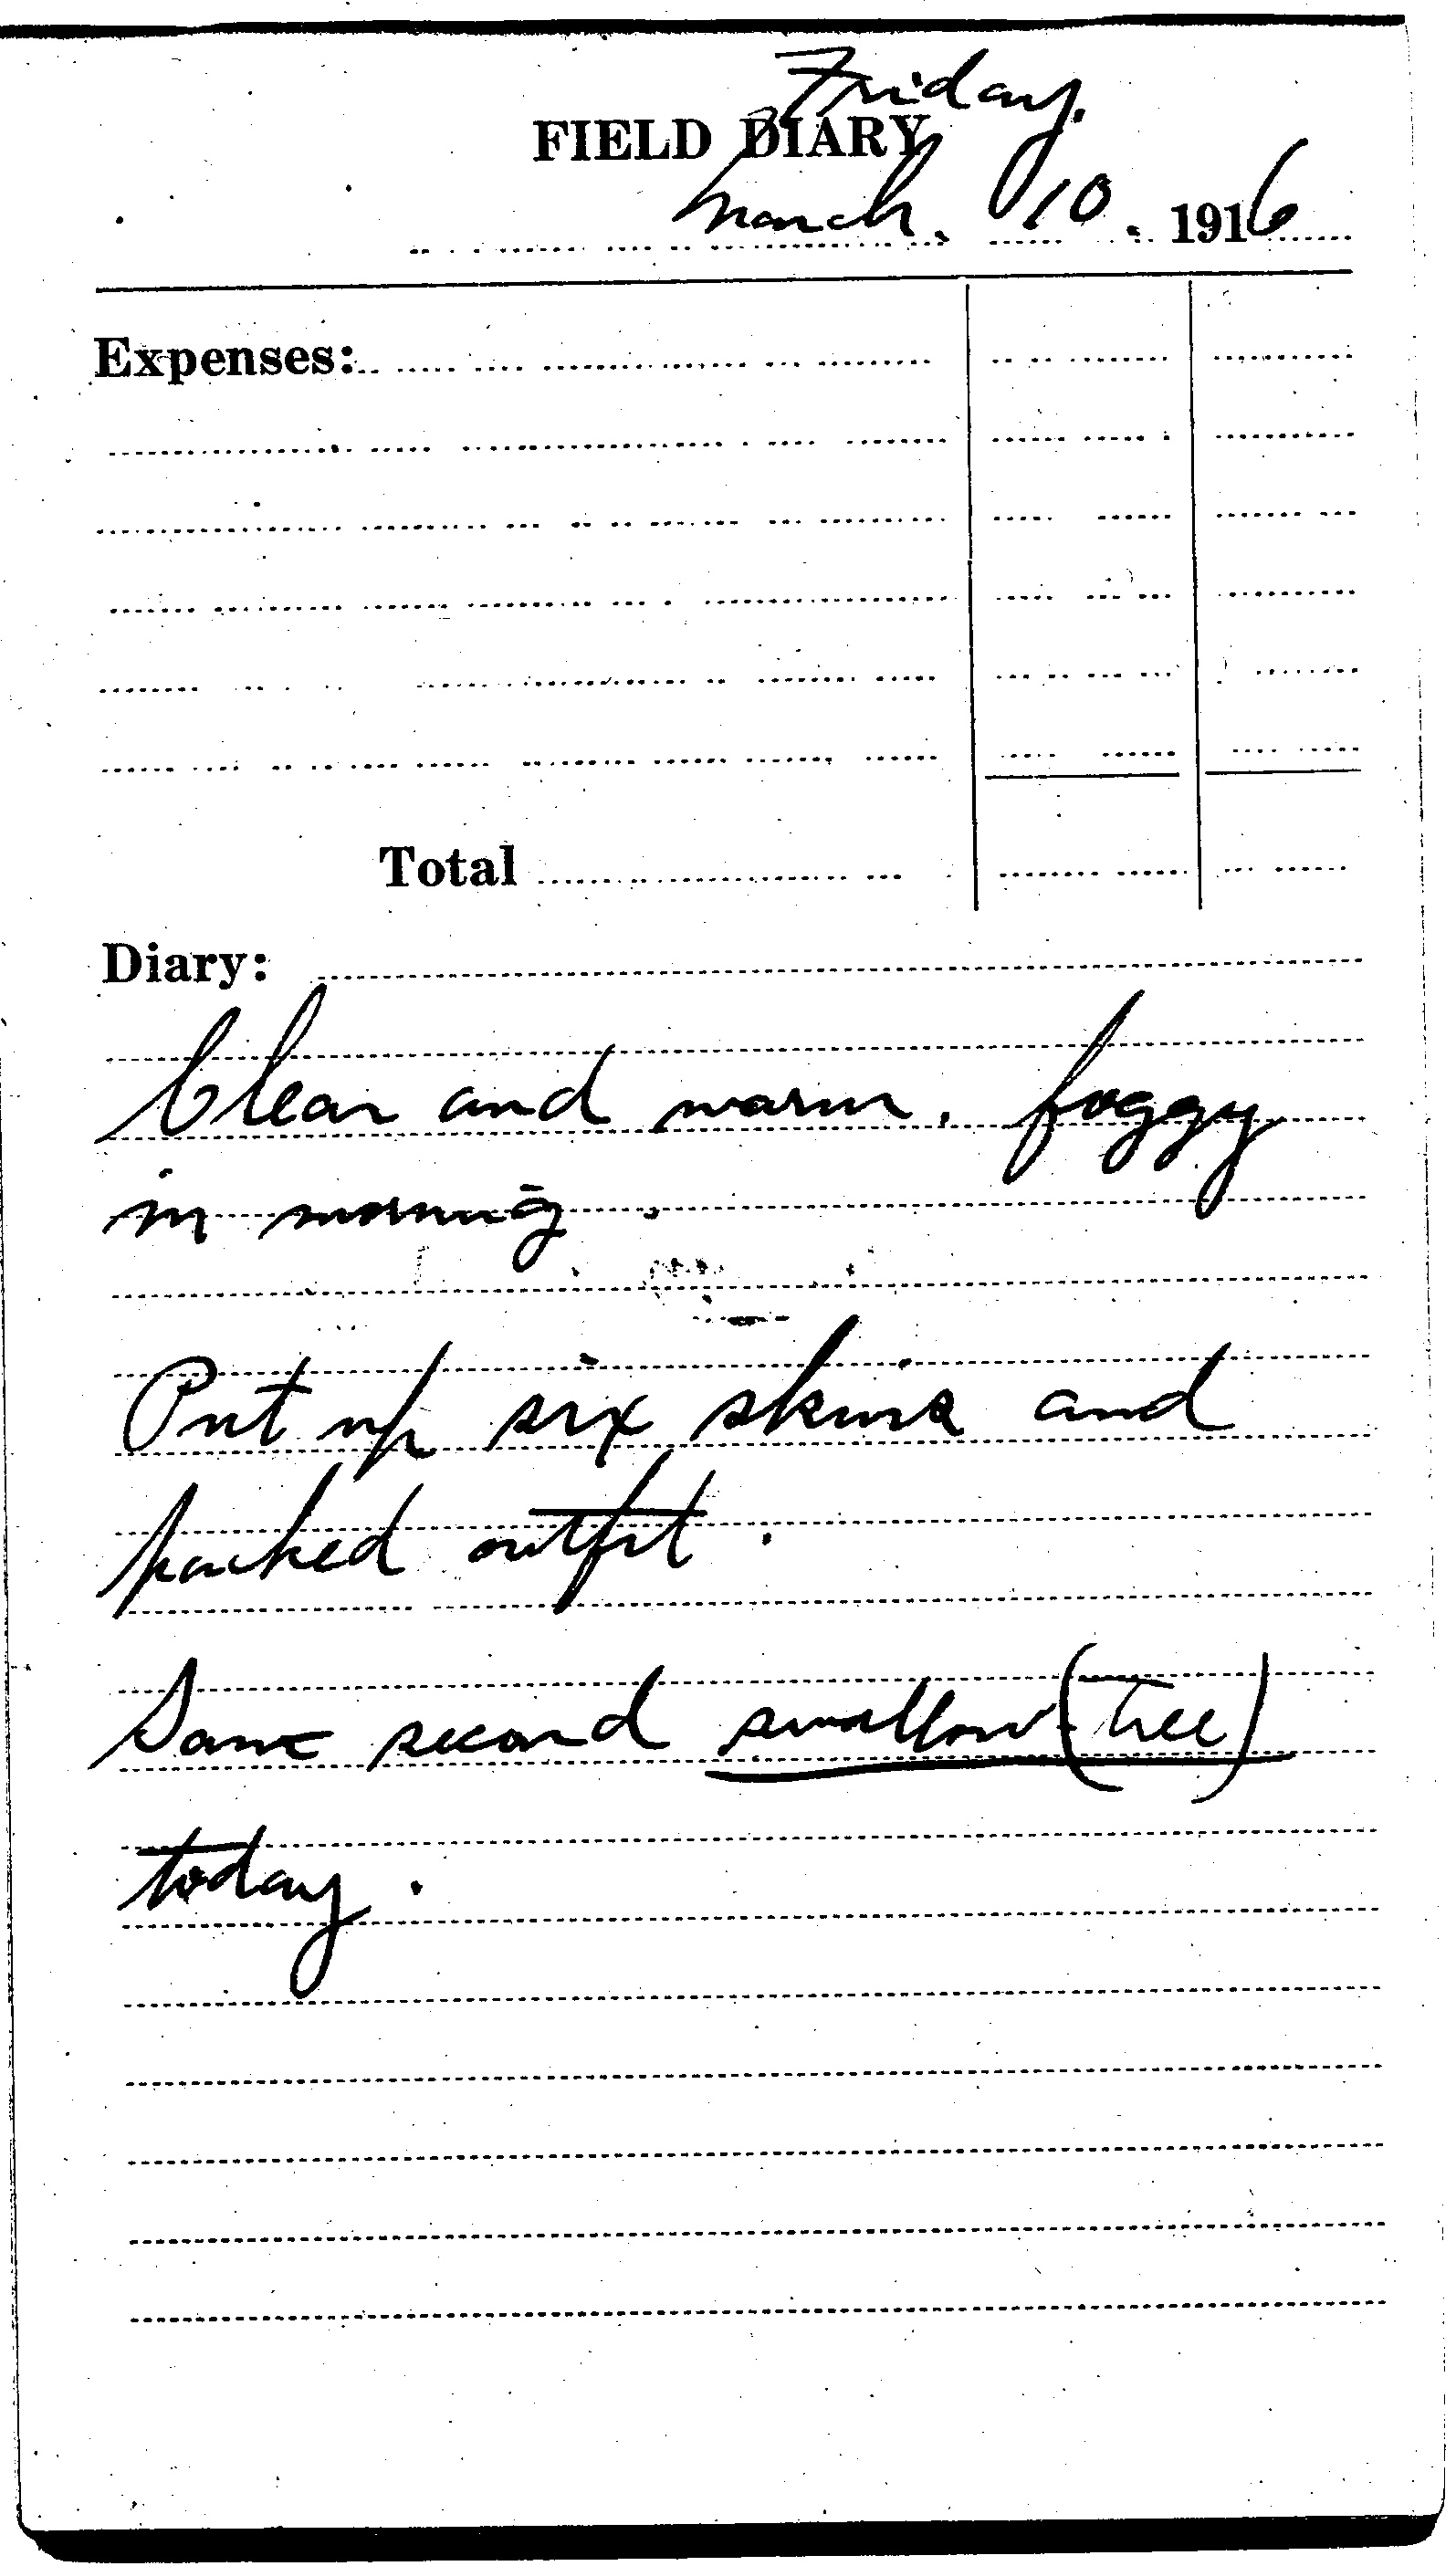 Friday.
FIELD DIARY
March. 10. 1916
Expenses:
Total
Diary:
Clear and warm. foggy
in morning.
Put up six skins and
packed outfit.
Saw second swallow (Tree)
today.